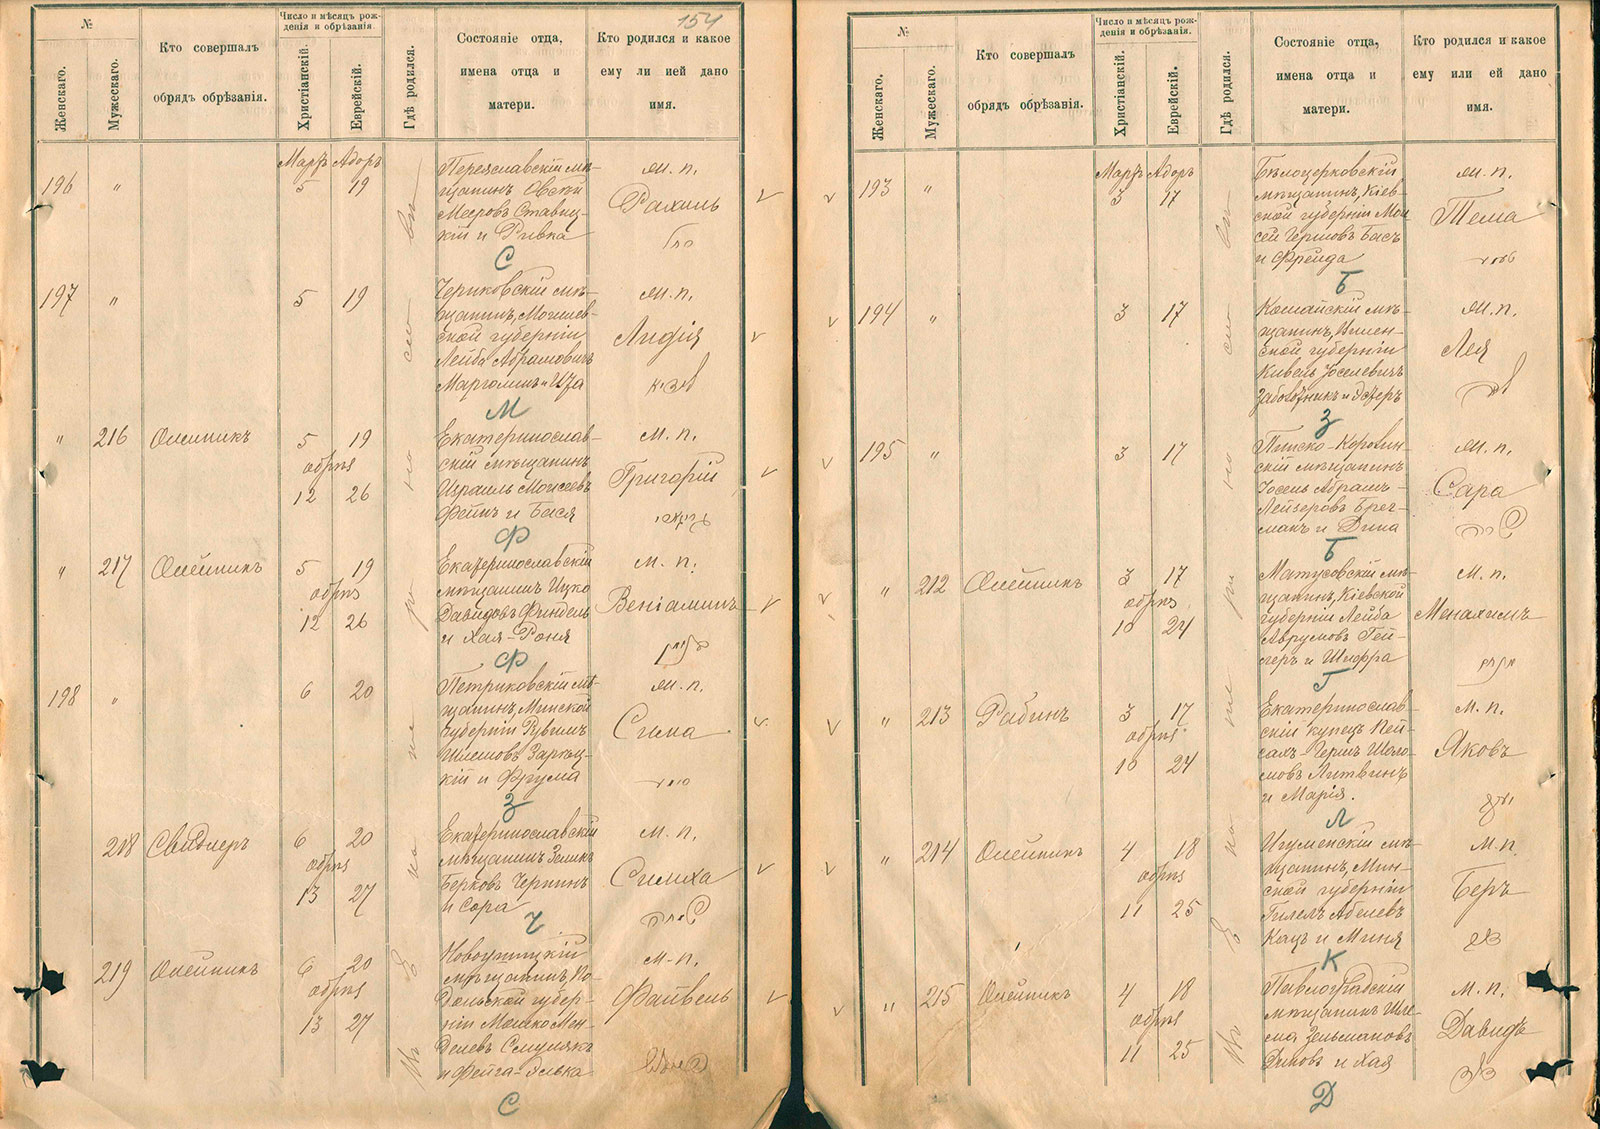 154
№
Женскаго.
Мужескаго.
Кто совершалъ
обрядъ обрѣзанія.
Число и мѣсяцъ рож-
денія и обрѣзанія.
Христіанскій.
Еврейскій.
Гдѣ родился.
Состояніе отца,
имена отца и
матери.
Кто родился и какое
ему ли ией дано
имя.
Мартъ Адоръ
196 " 5 19
Переяславскій мѣ-
щанинъ Овсей
Мееровъ Ставиц-
кій и Ривка
м. п.
Рахиль
רחל
С
197 " 5 19
Чериковскій мѣ-
щанинъ, Могилев-
ской губерніи
Лейба Абрамовичъ
Марголинъ и Иза
м. п.
Лидія
М
" 216 Олейникъ 5 19
обрѣз
12 26
Екатеринослав-
скій мѣщанинъ
Израиль Моисеевъ
Фейнъ и Бася
м. п.
Григорій
Ф
" 217 Олейникъ 5 19
обрѣз
12 26
Екатеринославскій
мѣщанинъ Ицко
Давидовъ
и Хая-Роня
м. п.
Веніаминъ
Ф
198 " 6 20
Петриковскій мѣ-
щанинъ, Минской
губерніи Рувимъ
Шлемовъ Зарѣц-
кій и Фрума
м. п.
Сима
З
218 Свидлеръ 6 20
обрѣз
13 27
Екатеринославскій
мѣщанинъ Зеликъ
Берковъ Чернинъ
и Сора
м. п.
Симха
שמחה
Ч
219 Олейникъ 6 20
обрѣз
13 27
Новоушицкій
мѣщанинъ, По-
дольской губер-
ніи Мошко Мен-
делевъ Смулякъ
и Фейга-Хавка
м. п.
Файвель
С
Въ Екатеринославѣ
№
Женскаго.
Мужескаго.
Кто совершалъ
обрядъ обрѣзанія.
Число и мѣсяцъ рож-
денія и обрѣзанія.
Христіанскій.
Еврейскій.
Гдѣ родился.
Состояніе отца,
имена отца и
матери.
Кто родился и какое
ему или ей дано
имя.
Мартъ Адоръ
193 " 3 17
Бѣлоцерковскій
мѣщанинъ, Кіев-
ской губерніи Мои
сей Гершовъ Басъ
и Фрейда
м. п.
Тема
Б
194 " 3 17
мѣ-
щанинъ, Вилен-
ской губерніи
Кивель Іоселевичъ
и Эстеръ
м. п.
Лея
לאה
З
195 " 3 17
Пинско-Каролин-
скій мѣщанинъ
Іосель Абрамъ-
Лейзеровъ Брег-
манъ и Дина
м. п.
Сара
שרה
Б
" 212 Олейникъ 3 17
обрѣз
10 24
Матусовскій мѣ-
щанинъ, Кіевской
губерніи Лейба
Аврумовъ Гей-
леръ и Шифра
м. п.
Менахимъ
Г
" 213 Рабинъ 3 17
обрѣз
10 24
Екатеринослав-
скій купецъ Пей-
сахъ-Гершъ Шоло-
мовъ Литвинъ
и Марія.
м. п.
Яковъ
יעקב
Л
" 214 Олейникъ 4 18
обрѣз
11 25
Игуменскій мѣ-
щанинъ, Мин-
ской губерніи
Гилелъ Абелевъ
Кацъ и Миня
м. п.
Беръ
בער
К
" 215 Олейникъ 4 18
обрѣз
11 25
Павлоградскій
мѣщанинъ Шле-
ма Зельмановъ
Дымовъ и Хая
м. п.
Давидъ
דוד
Д
Въ Екатеринославѣ